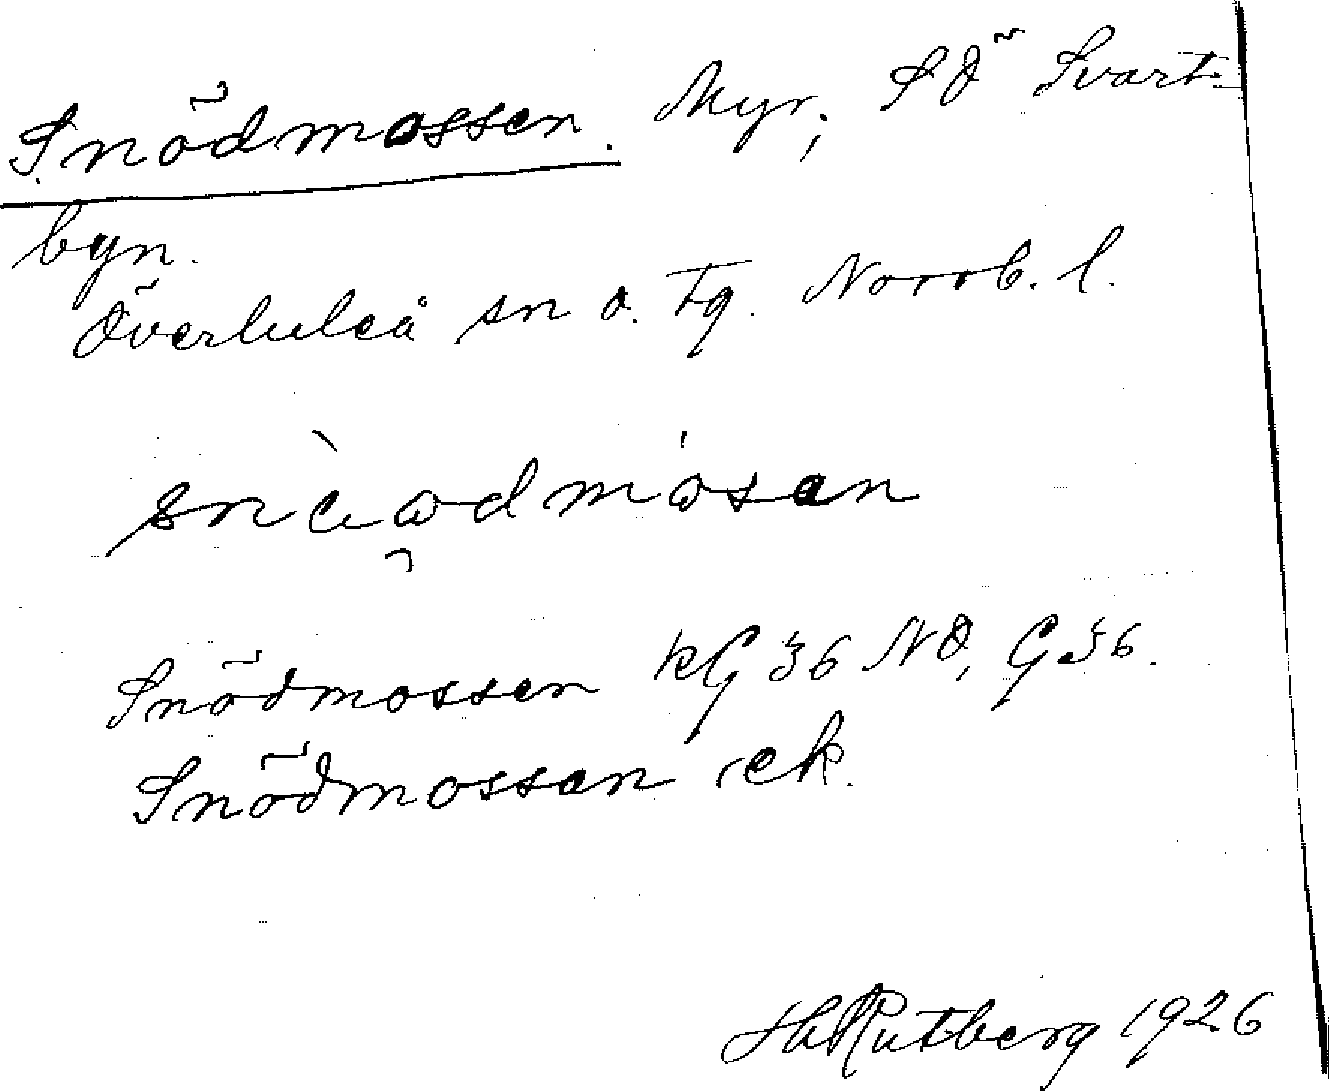 Snödmossen. Myr, SÖ Svart-
byn.
Överluleå sn o. tg. Norrb. l.
Snödmossen kG 36 NO, G 36.
Snödmossan ek.
H Rutberg 1926